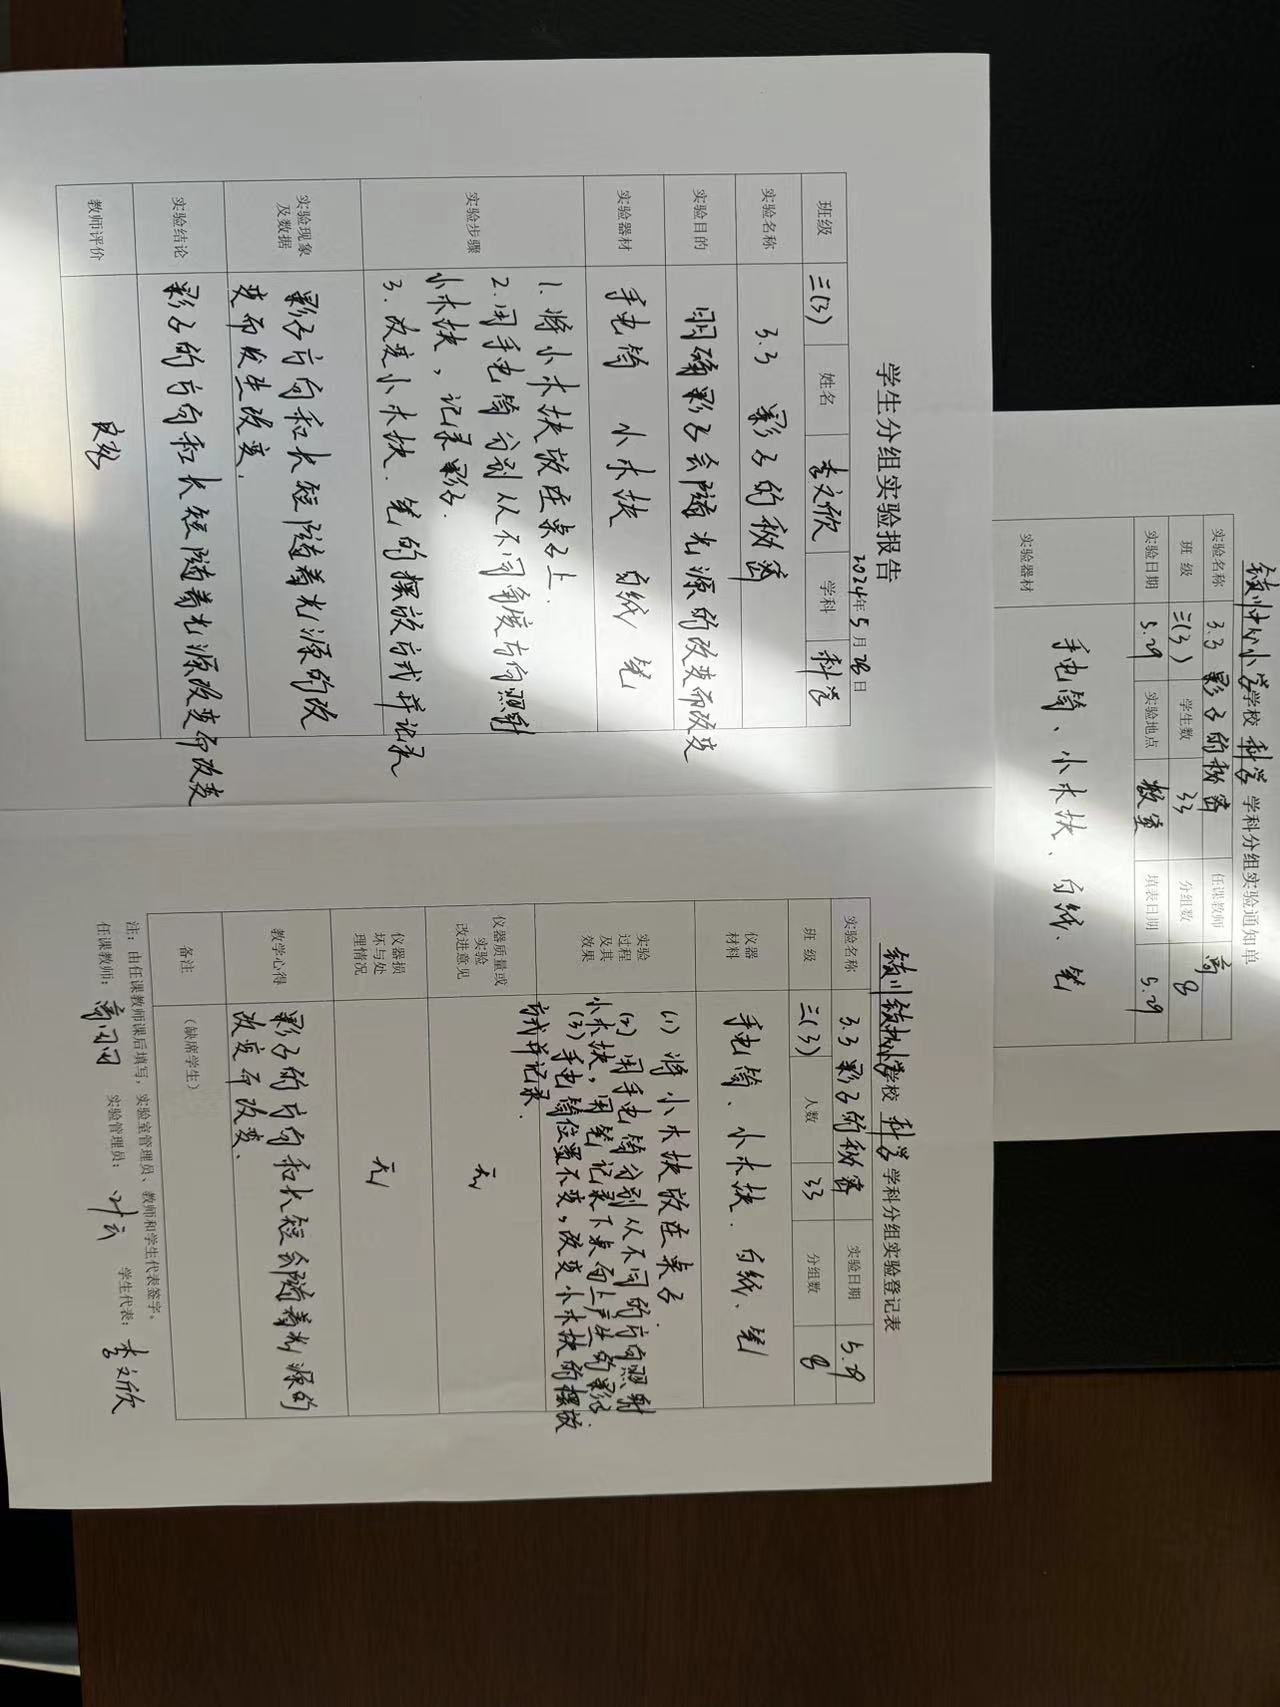 学生分组实验报告
2024年5月28日
班级 三(3) 姓名 李文欣 学科 科学
实验名称 3.3 影子的秘密
实验目的 明确影子会随光源的改变而改变
实验器材 手电筒 小木块 白纸 笔
实验步骤
1. 将小木块放在桌子上.
2. 用手电筒分别从不同角度方向照射
小木块，记录影子.
3. 改变小木块、笔的摆放方式并记录
实验现象
及数据
影子方向和长短随着光源的改
变而发生改变.
实验结论 影子的方向和长短随着光源改变而改变
教师评价 良好
中心小学学校 科学 学科分组实验通知单
实验名称 3.3 影子的秘密 任课教师
班 级 三(3) 学生数 33 分组数 8
实验日期 5.29 实验地点 教室 填表日期 5.29
实验器材 手电筒、小木块、白纸、笔
学校 科学 学科分组实验登记表
实验名称 3.3 影子的秘密 实验日期 5.29
班 级 三(3) 人数 33 分组数 8
仪器
材料
手电筒、小木块、白纸、笔
实验
过程
及其
效果
(1) 将小木块放在桌子.
(2) 用手电筒分别从不同的方向照射
小木块，用笔记录下桌面上产生的影子.
(3) 手电筒位置不变，改变小木块的摆放
方式并记录.
仪器质量或
实验
改进意见
无
仪器损
坏与处
理情况
无
教学心得
影子的方向和长短会随着光源的
改变而改变.
备注 （缺席学生）
注：由任课教师课后填写，实验室管理员、教师和学生代表签字。
任课教师： 实验管理员： 学生代表：李文欣